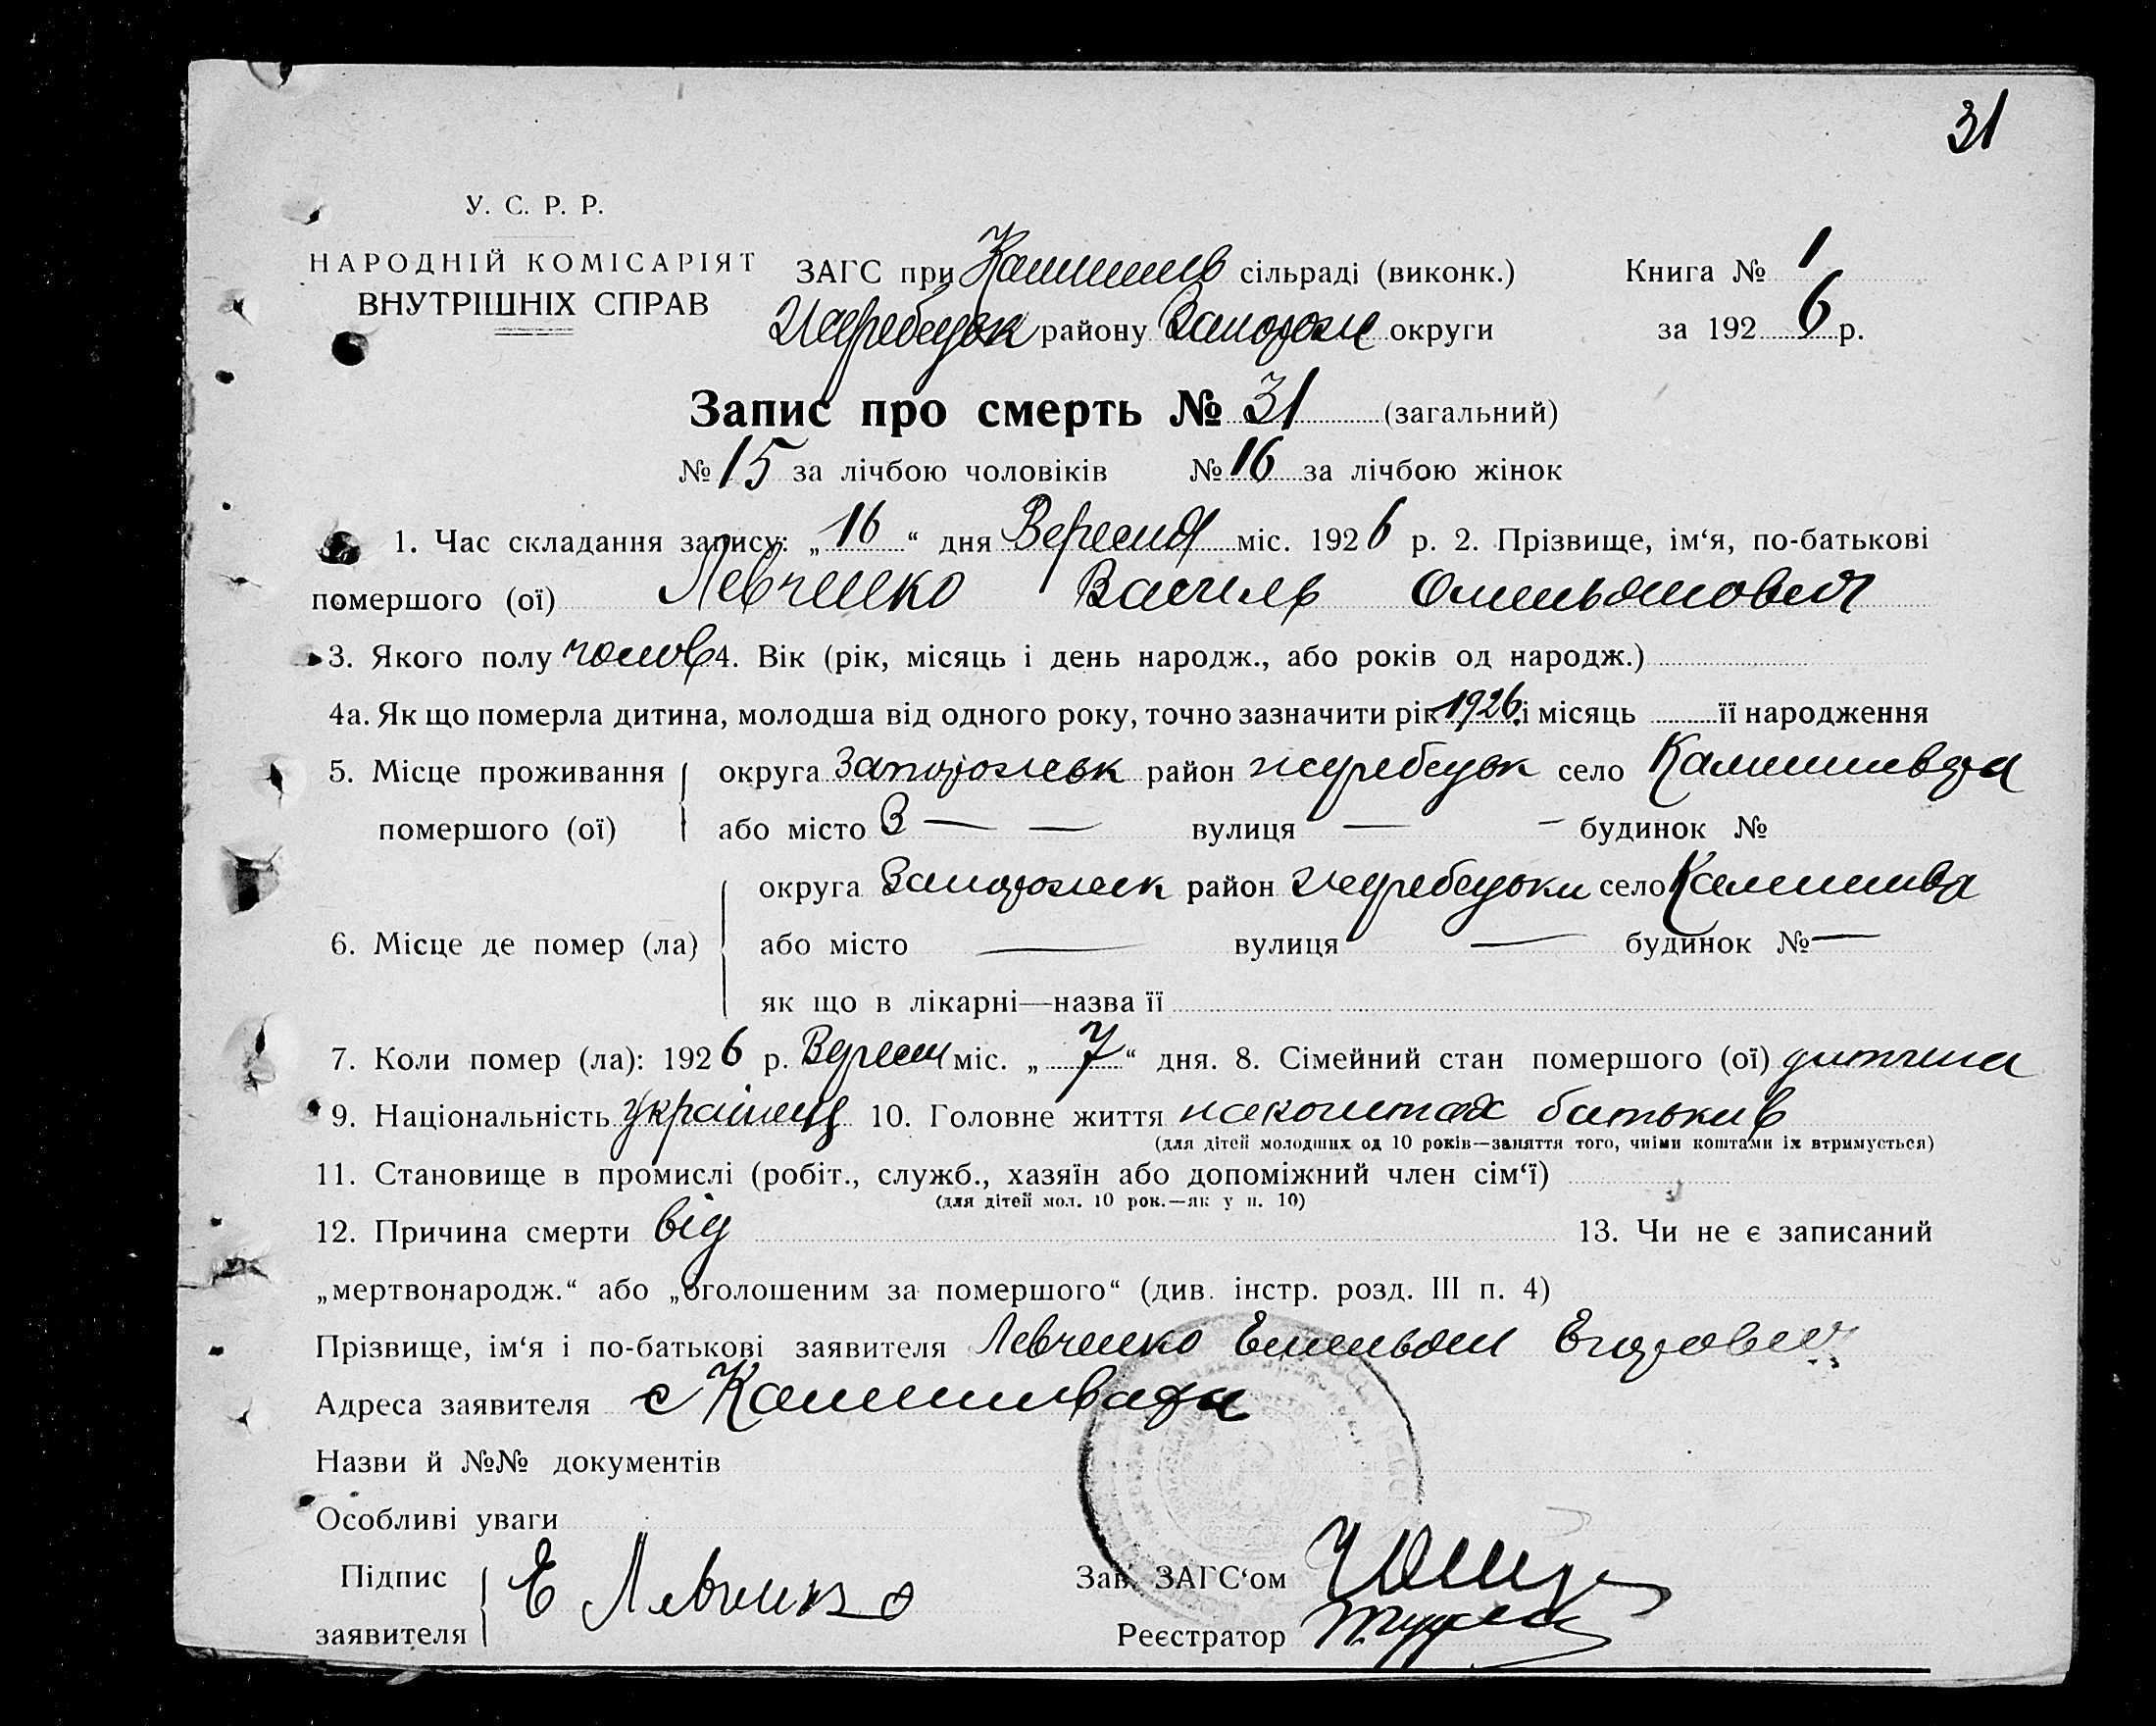 31
У. С. Р. Р.
НАРОДНІЙ КОМІСАРІЯТ
ВНУТРІШНІХ СПРАВ
ЗАГС при Камишев сільраді (виконк.) Книга № 1
Жеребецьк району Запорож округи за 1926 р.
Запис про смерть № 31 (загальний)
№ 15 за лічбою чоловіків № 16 за лічбою жінок
1. Час складання запису: „16“ дня Вересня міс. 1926 р. 2. Прізвище, ім‘я, по-батькові
помершого (ої) Левченко Василь Омельянович
3. Якого полу чолов 4. Вік (рік, місяць і день народж., або років од народж.)
4а. Як що померла дитина, молодша від одного року, точно зазначити рік 1926 і місяць її народження
5. Місце проживання округа Запорожськ район жеребецьк село
помершого (ої) або місто З — — вулиця — - будинок №
округа Запорожск район жеребецьки село
6. Місце де помер (ла) або місто — вулиця — будинок № —
як що в лікарні—назва її
7. Коли помер (ла): 1926 р. Вересн міс. „7“ дня. 8. Сімейний стан помершого (ої) дитина
9. Національність українець 10. Головне життя на коштах батьків
(для дітей молодших од 10 років—заняття того, чиїми коштами їх втримується)
11. Становище в промислі (робіт., служб., хазяїн або допоміжний член сім‘ї)
(для дітей мол. 10 рок.—як у п. 10)
12. Причина смерти від 13. Чи не є записаний
„мертвонародж.“ або „оголошеним за помершого“ (див. інстр. розд. III п. 4)
Прізвище, ім‘я і по-батькові заявителя Левченко Емельян Егорович
Адреса заявителя с
Назви й №№ документів
Особливі уваги
Підпис Е Левченко Зав. ЗАГС‘ом
заявителя Реєстратор